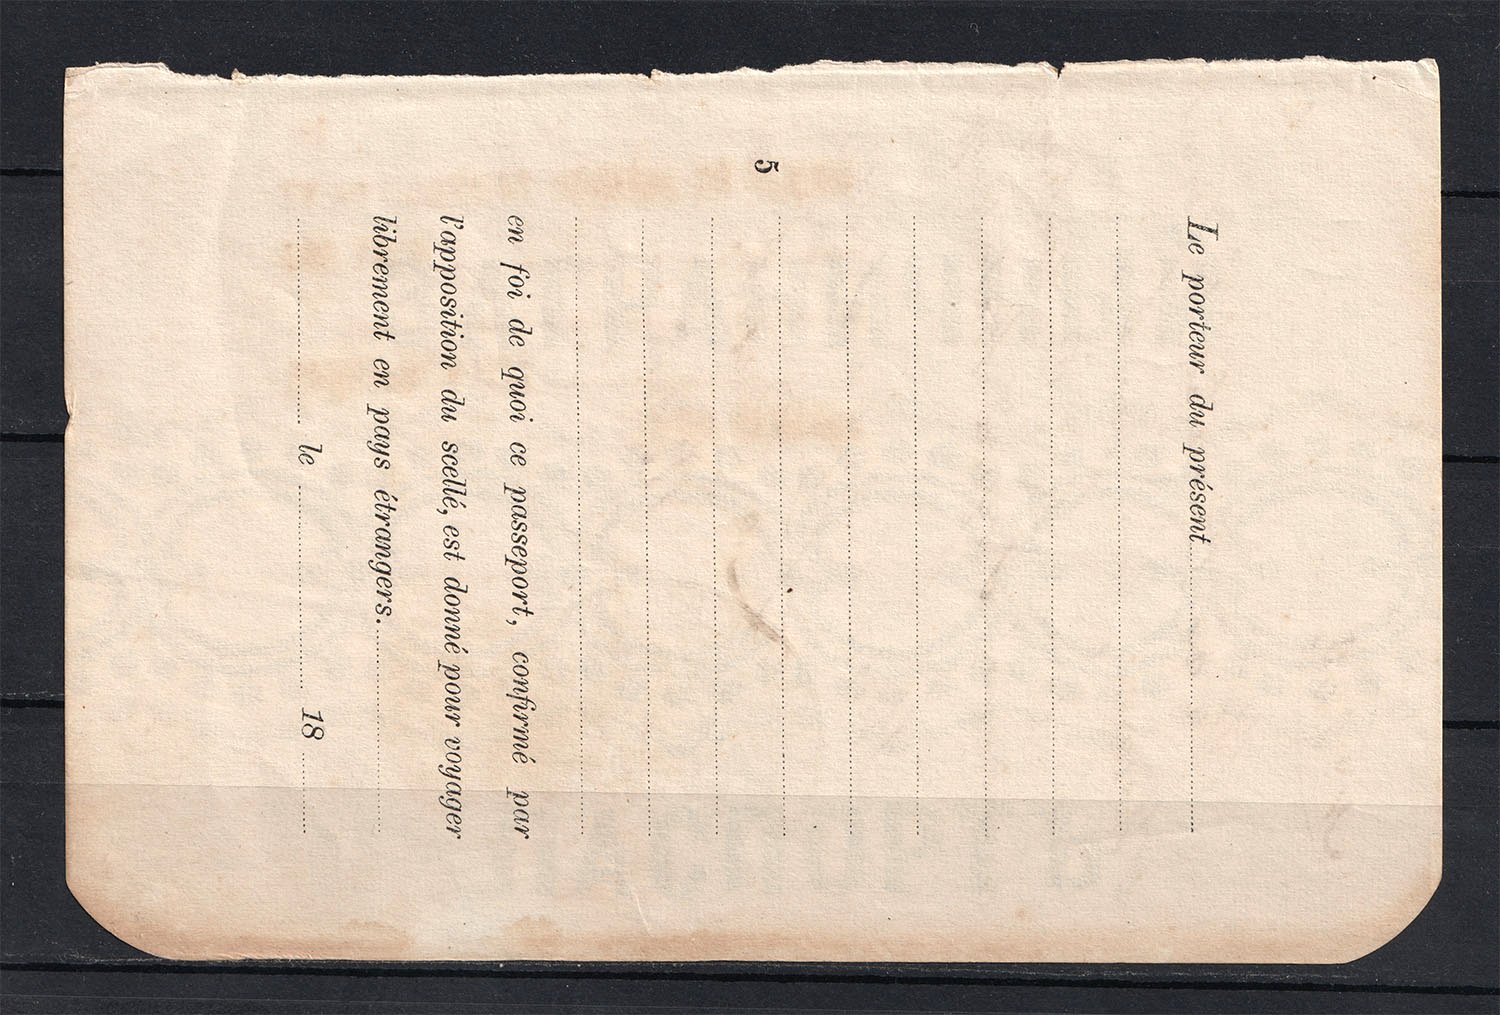 5
Le porteur du présent
en foi de quoi ce passeport, confirmé par
l'apposition du scellé, est donné pour voyager
librement en pays étrangers.
le 18